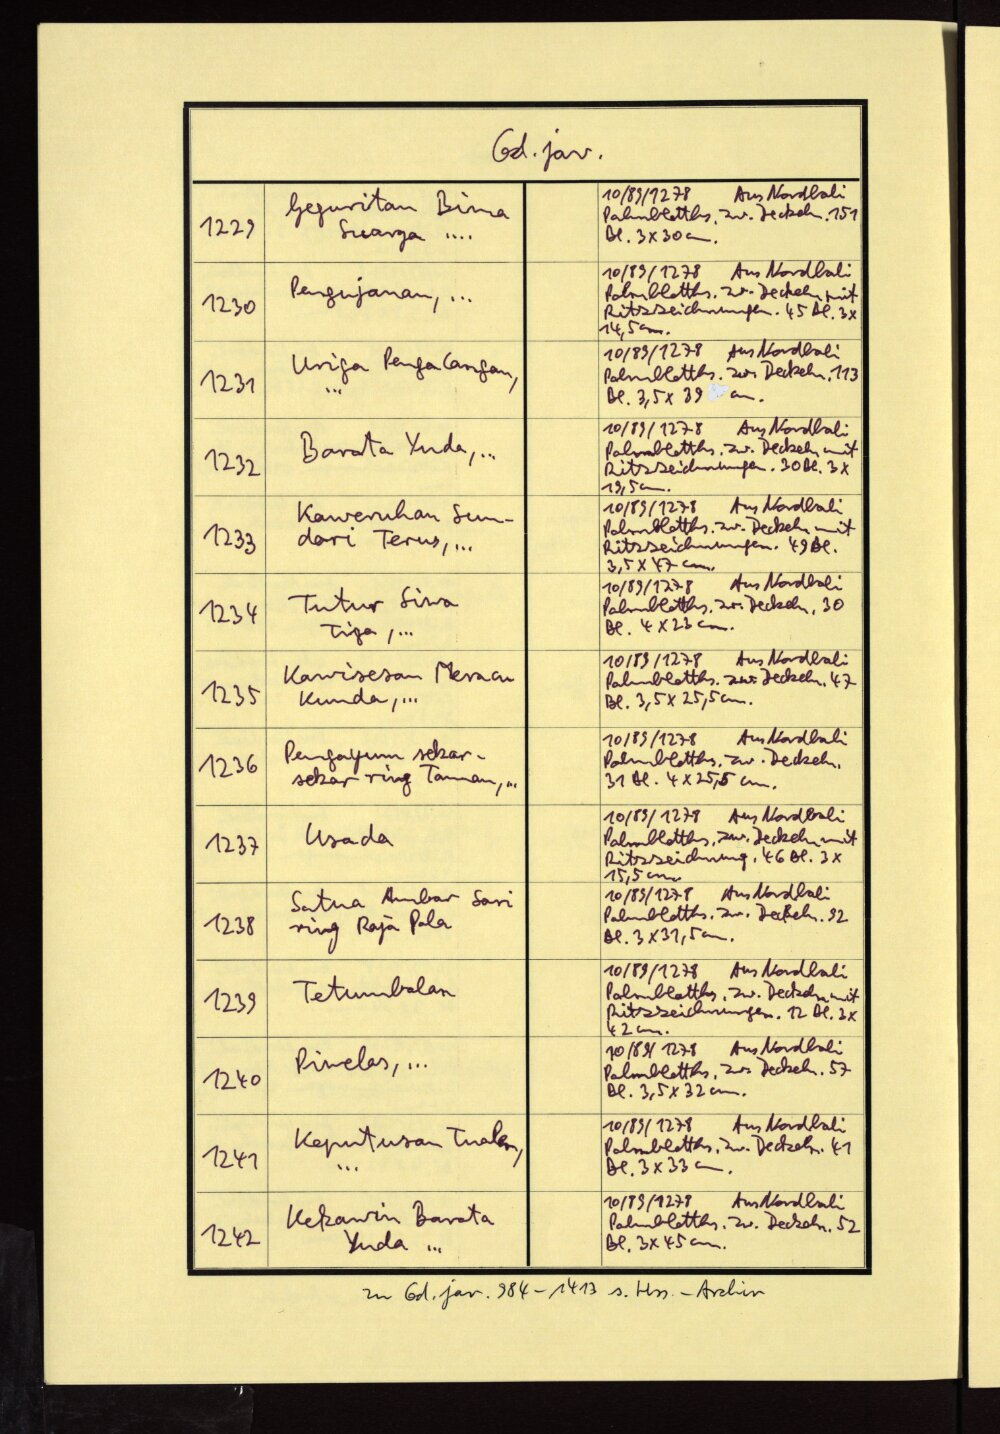 Cd. jav.
1229
Geguritan Bima
Swarga ....
10/89/1278 Aus Nordbali
Palmblatths. zw. Deckeln. 151
Bl. 3 x 30 cm.
1230
Pengujanan, ...
10/89/1278 Aus Nordbali
Palmblatths. zw. Deckeln mit
Ritzzeichnungen. 45 Bl. 3 x
14,5 cm.
1231
Uriga Pengalangan,
...
10/89/1278 Aus Nordbali
Palmblatths. zw. Deckeln. 113
Bl. 3,5 x 39 cm.
1232
Barata Yuda, ...
10/89/1278 Aus Nordbali
Palmblatths. zw. Deckeln mit
Ritzzeichnungen. 30 Bl. 3 x
19,5 cm.
1233
Kaweruhan Sun-
dari Terus, ...
10/89/1278 Aus Nordbali
Palmblatths. zw. Deckeln mit
Ritzzeichnungen. 49 Bl.
3,5 x 47 cm.
1234
Tutur Siwa
Tiga, ...
10/89/1278 Aus Nordbali
Palmblatths. zw. Deckeln. 30
Bl. 4 x 23 cm.
1235
Kawisesan Meracu
Kunda, ...
10/89/1278 Aus Nordbali
Palmblatths. zw. Deckeln. 47
Bl. 3,5 x 25,5 cm.
1236
Pengayum sekar-
sekar ring Taman, ...
10/89/1278 Aus Nordbali
Palmblatths. zw. Deckeln.
31 Bl. 4 x 25,5 cm.
1237
Usada
10/89/1278 Aus Nordbali
Palmblatths. zw. Deckeln mit
Ritzzeichnung. 46 Bl. 3 x
15,5 cm.
1238
Satua Ambar Sari
ring Raja Pala
10/89/1278 Aus Nordbali
Palmblatths. zw. Deckeln. 92
Bl. 3 x 31,5 cm.
1239
Tetumbalan
10/89/1278 Aus Nordbali
Palmblatths. zw. Deckeln mit
Ritzzeichnungen. 12 Bl. 3 x
42 cm.
1240
Piwelas, ...
10/89/1278 Aus Nordbali
Palmblatths. zw. Deckeln. 57
Bl. 3,5 x 32 cm.
1241
Keputusan Tualen,
...
10/89/1278 Aus Nordbali
Palmblatths. zw. Deckeln. 41
Bl. 3 x 33 cm.
1242
Kekawin Barata
Yuda ...
10/89/1278 Aus Nordbali
Palmblatths. zw. Deckeln. 52
Bl. 3 x 45 cm.
zu Cd. jav. 984 - 1413 s. Hss. - Archiv